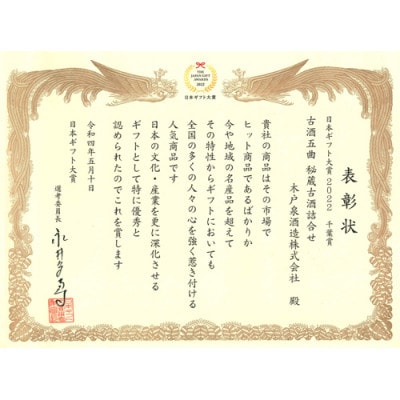 THE
JAPAN GIFT
AWARDS
2022
日本ギフト大賞
表彰状
日本ギフト大賞 2022 千葉賞
古酒五曲 秘蔵古酒詰合せ
木戸泉酒造株式会社 殿
貴社の商品はその市場で
ヒット商品であるばかりか
今や地域の名産品を超えて
その特性からギフトにおいても
全国の多くの人々の心を強く惹き付ける
人気商品です
日本の文化・産業を更に深化させる
ギフトとして特に優秀と
認められたのでこれを賞します
令和四年五月十日
日本ギフト大賞
選考委員長